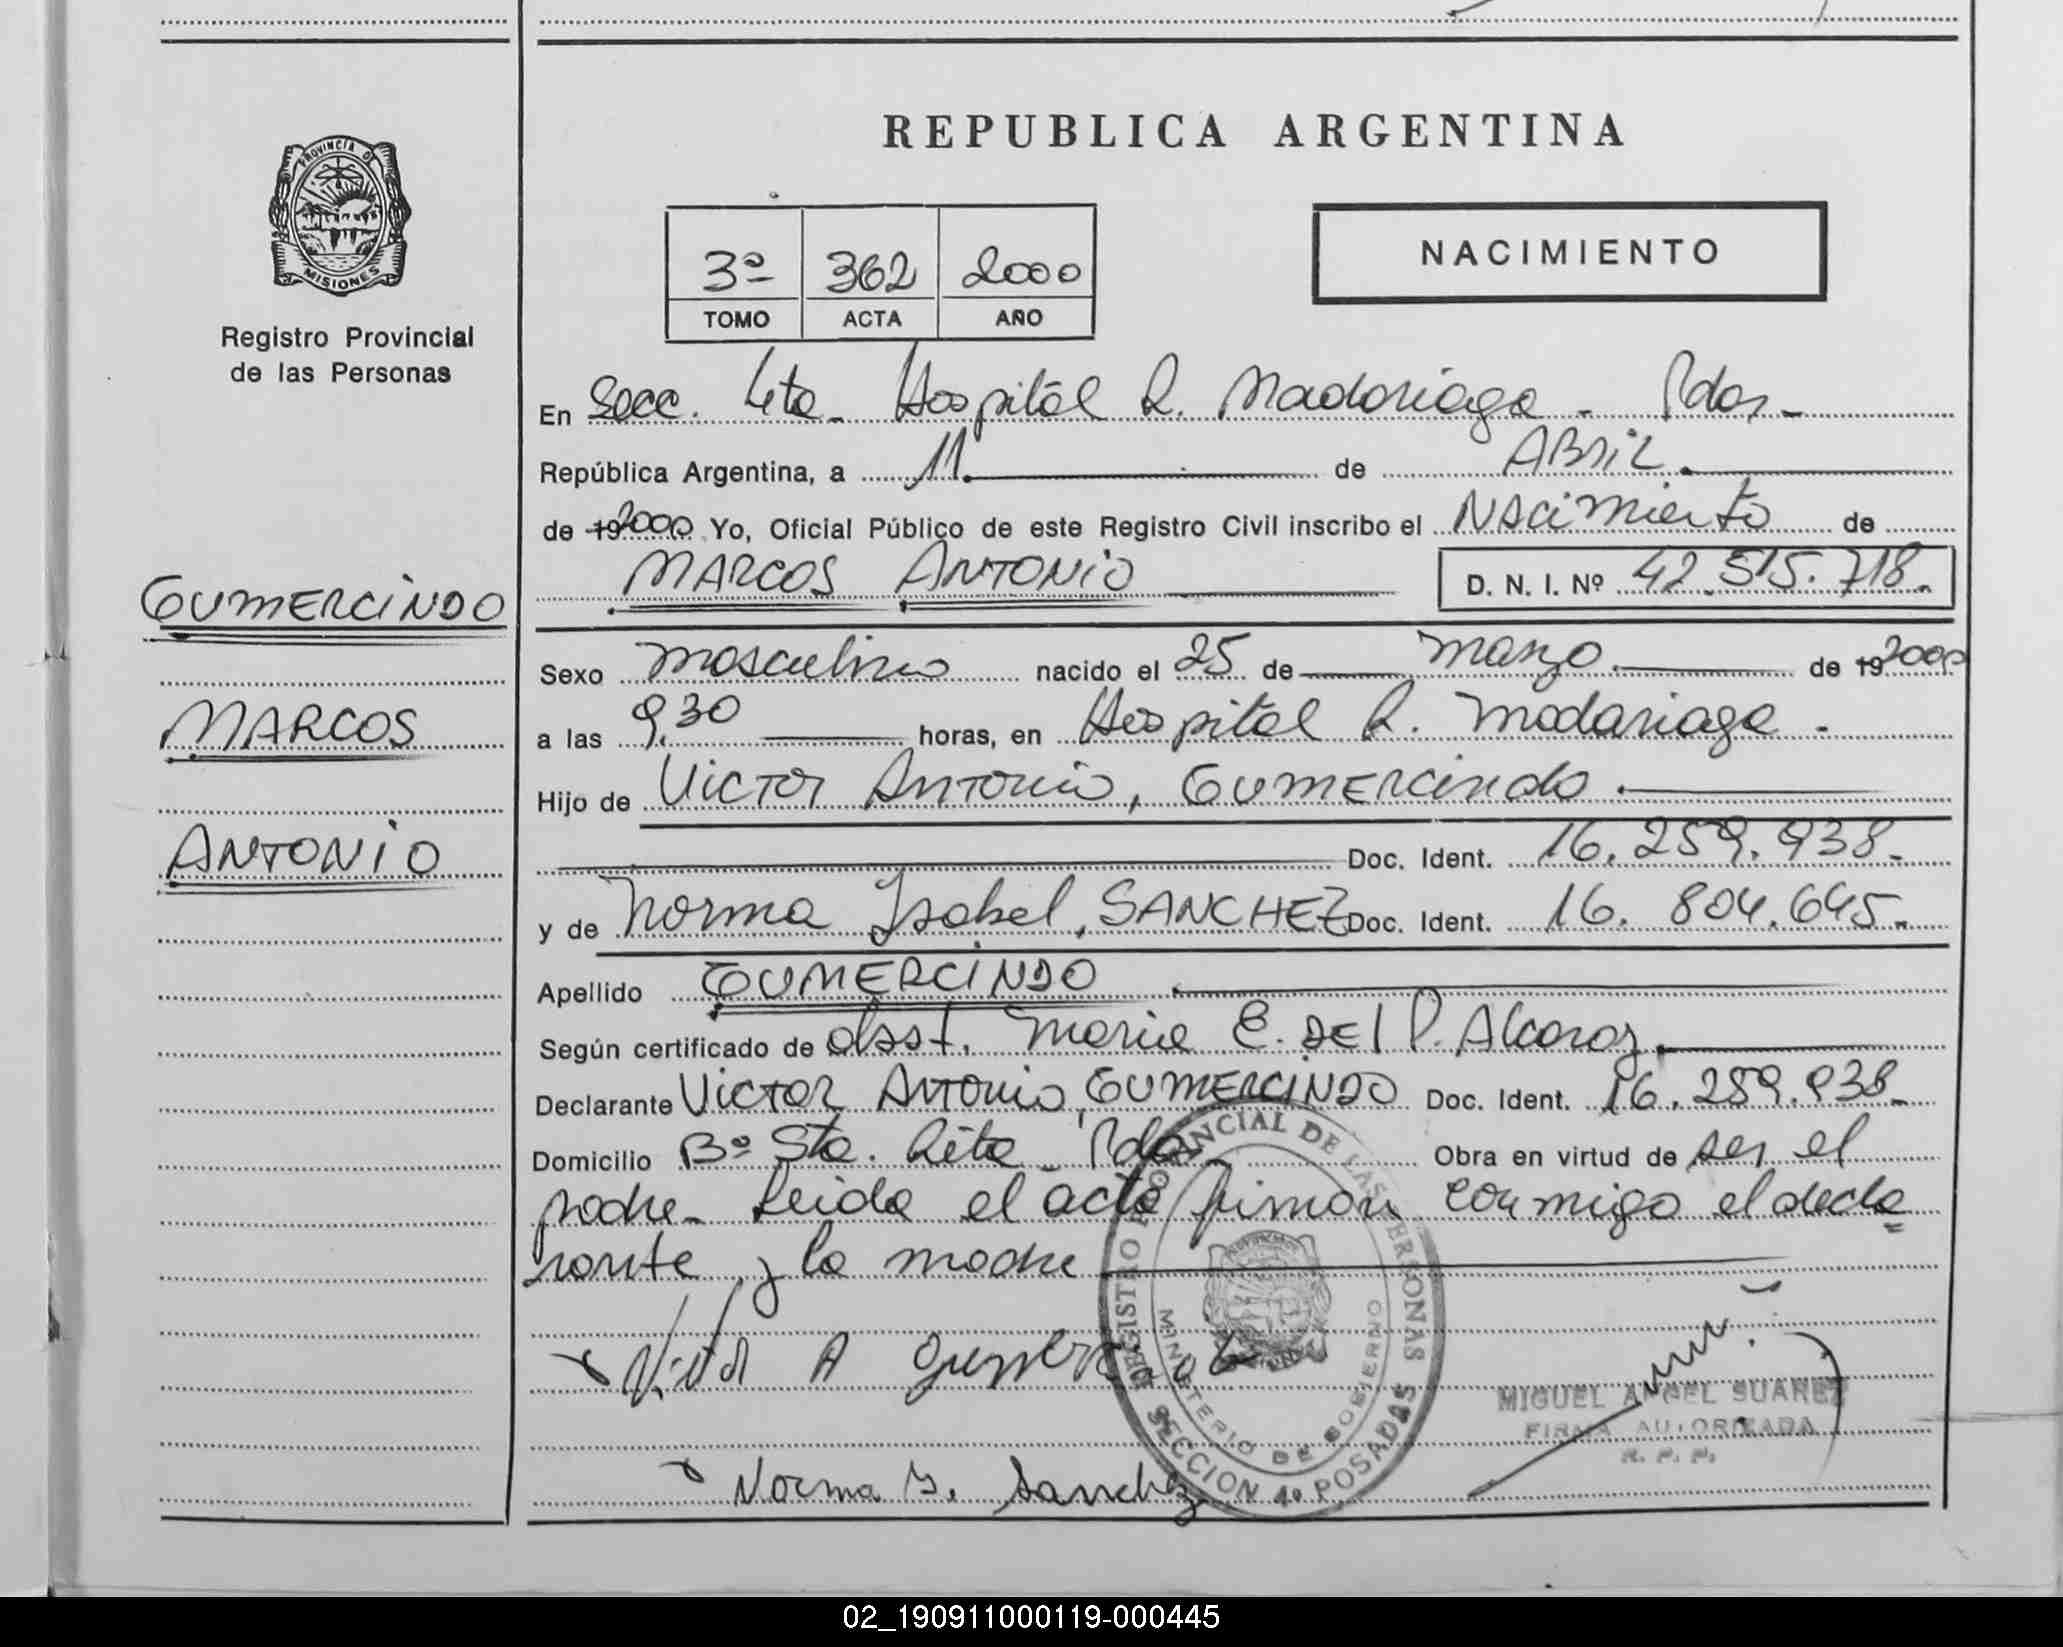 REPUBLICA ARGENTINA
PROVINCIA DE
MISIONES
Registro Provincial
de las Personas
3º 362 2000
TOMO ACTA AÑO
NACIMIENTO
En Secc. 4ta. Hospital R. Madariaga - Pdas -
República Argentina, a 11. de ABRIL.
de 192000 Yo, Oficial Público de este Registro Civil inscribo el NACIMIENTO de
MARCOS ANTONIO D. N. I. Nº 42.515.718.
GUMERCINDO
MARCOS
ANTONIO
Sexo Masculino nacido el 25 de Marzo. de 192000
a las 9,30 horas, en Hospital R. Madariaga.
Hijo de Victor Antonio, GUMERCINDO.
Doc. Ident. 16.259.938.
y de Norma Isabel, SANCHEZ Doc. Ident. 16.804.645.
Apellido GUMERCINDO
Según certificado de obst. Maria E. DEL P. Alcaraz.
Declarante Victor Antonio, GUMERCINDO Doc. Ident. 16.259.938.
Domicilio Bº Sta. Rita - Pdas Obra en virtud de ser el
padre - Leida el acta firman conmigo el decla=
rante y la madre
Victor A Gumercindo
Norma I. Sanchez
REGISTRO PROVINCIAL DE LAS PERSONAS
MINISTERIO DE GOBIERNO
SECCION 4º POSADAS
MIGUEL ANGEL SUAREZ
FIRMA AUTORIZADA
R. P. P.
02_190911000119-000445